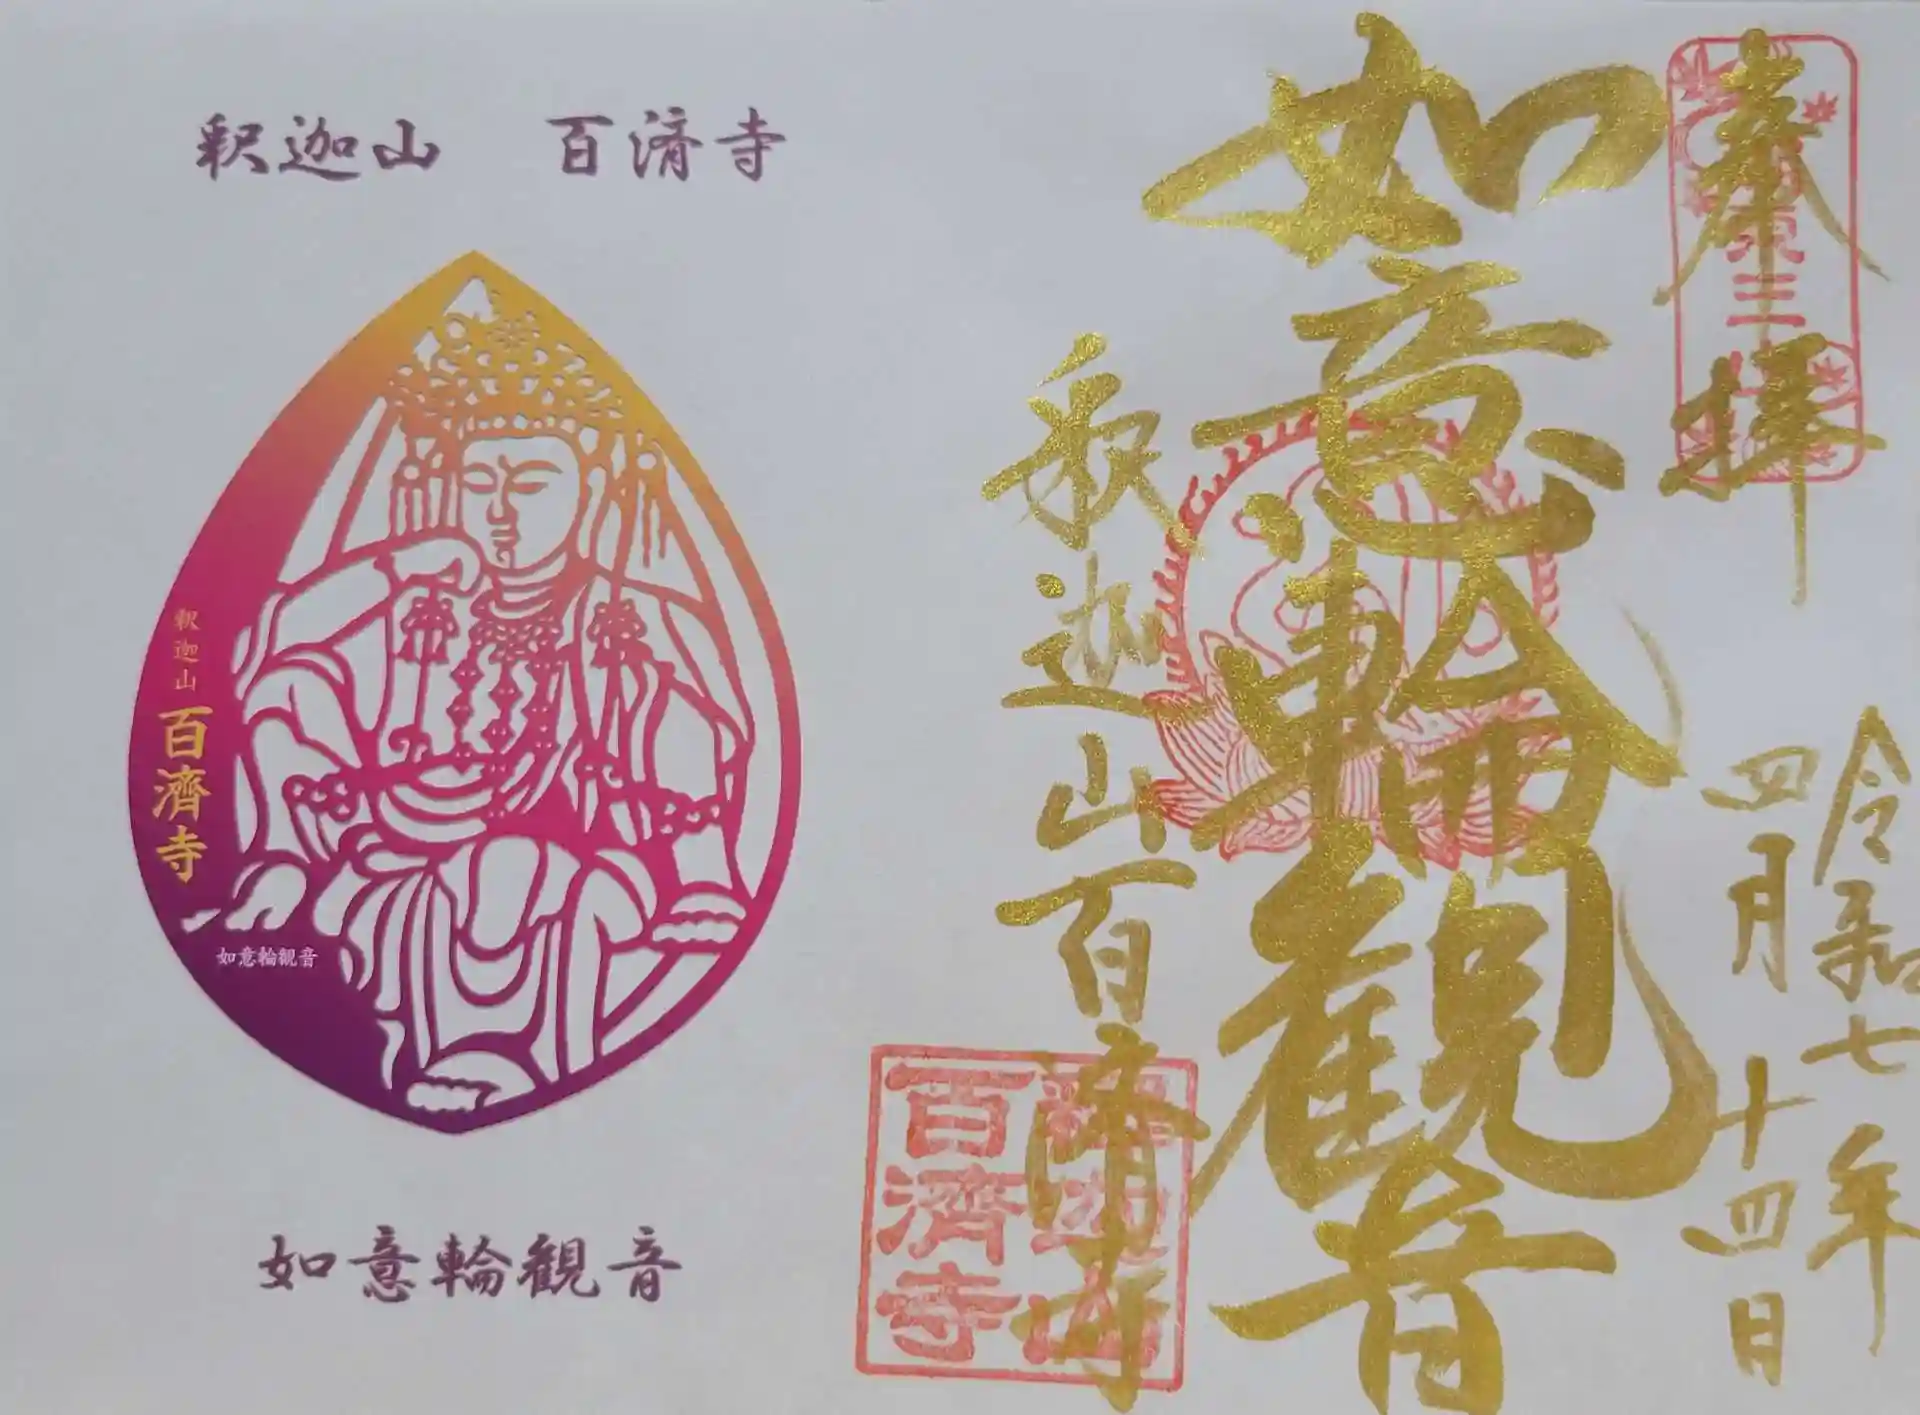 釈迦山 百済寺
釈迦山
百濟寺
如意輪観音
如意輪観音
奉拝
東
三
令和七年
四月十四日
如意輪観音
釈迦山百済寺
百濟寺